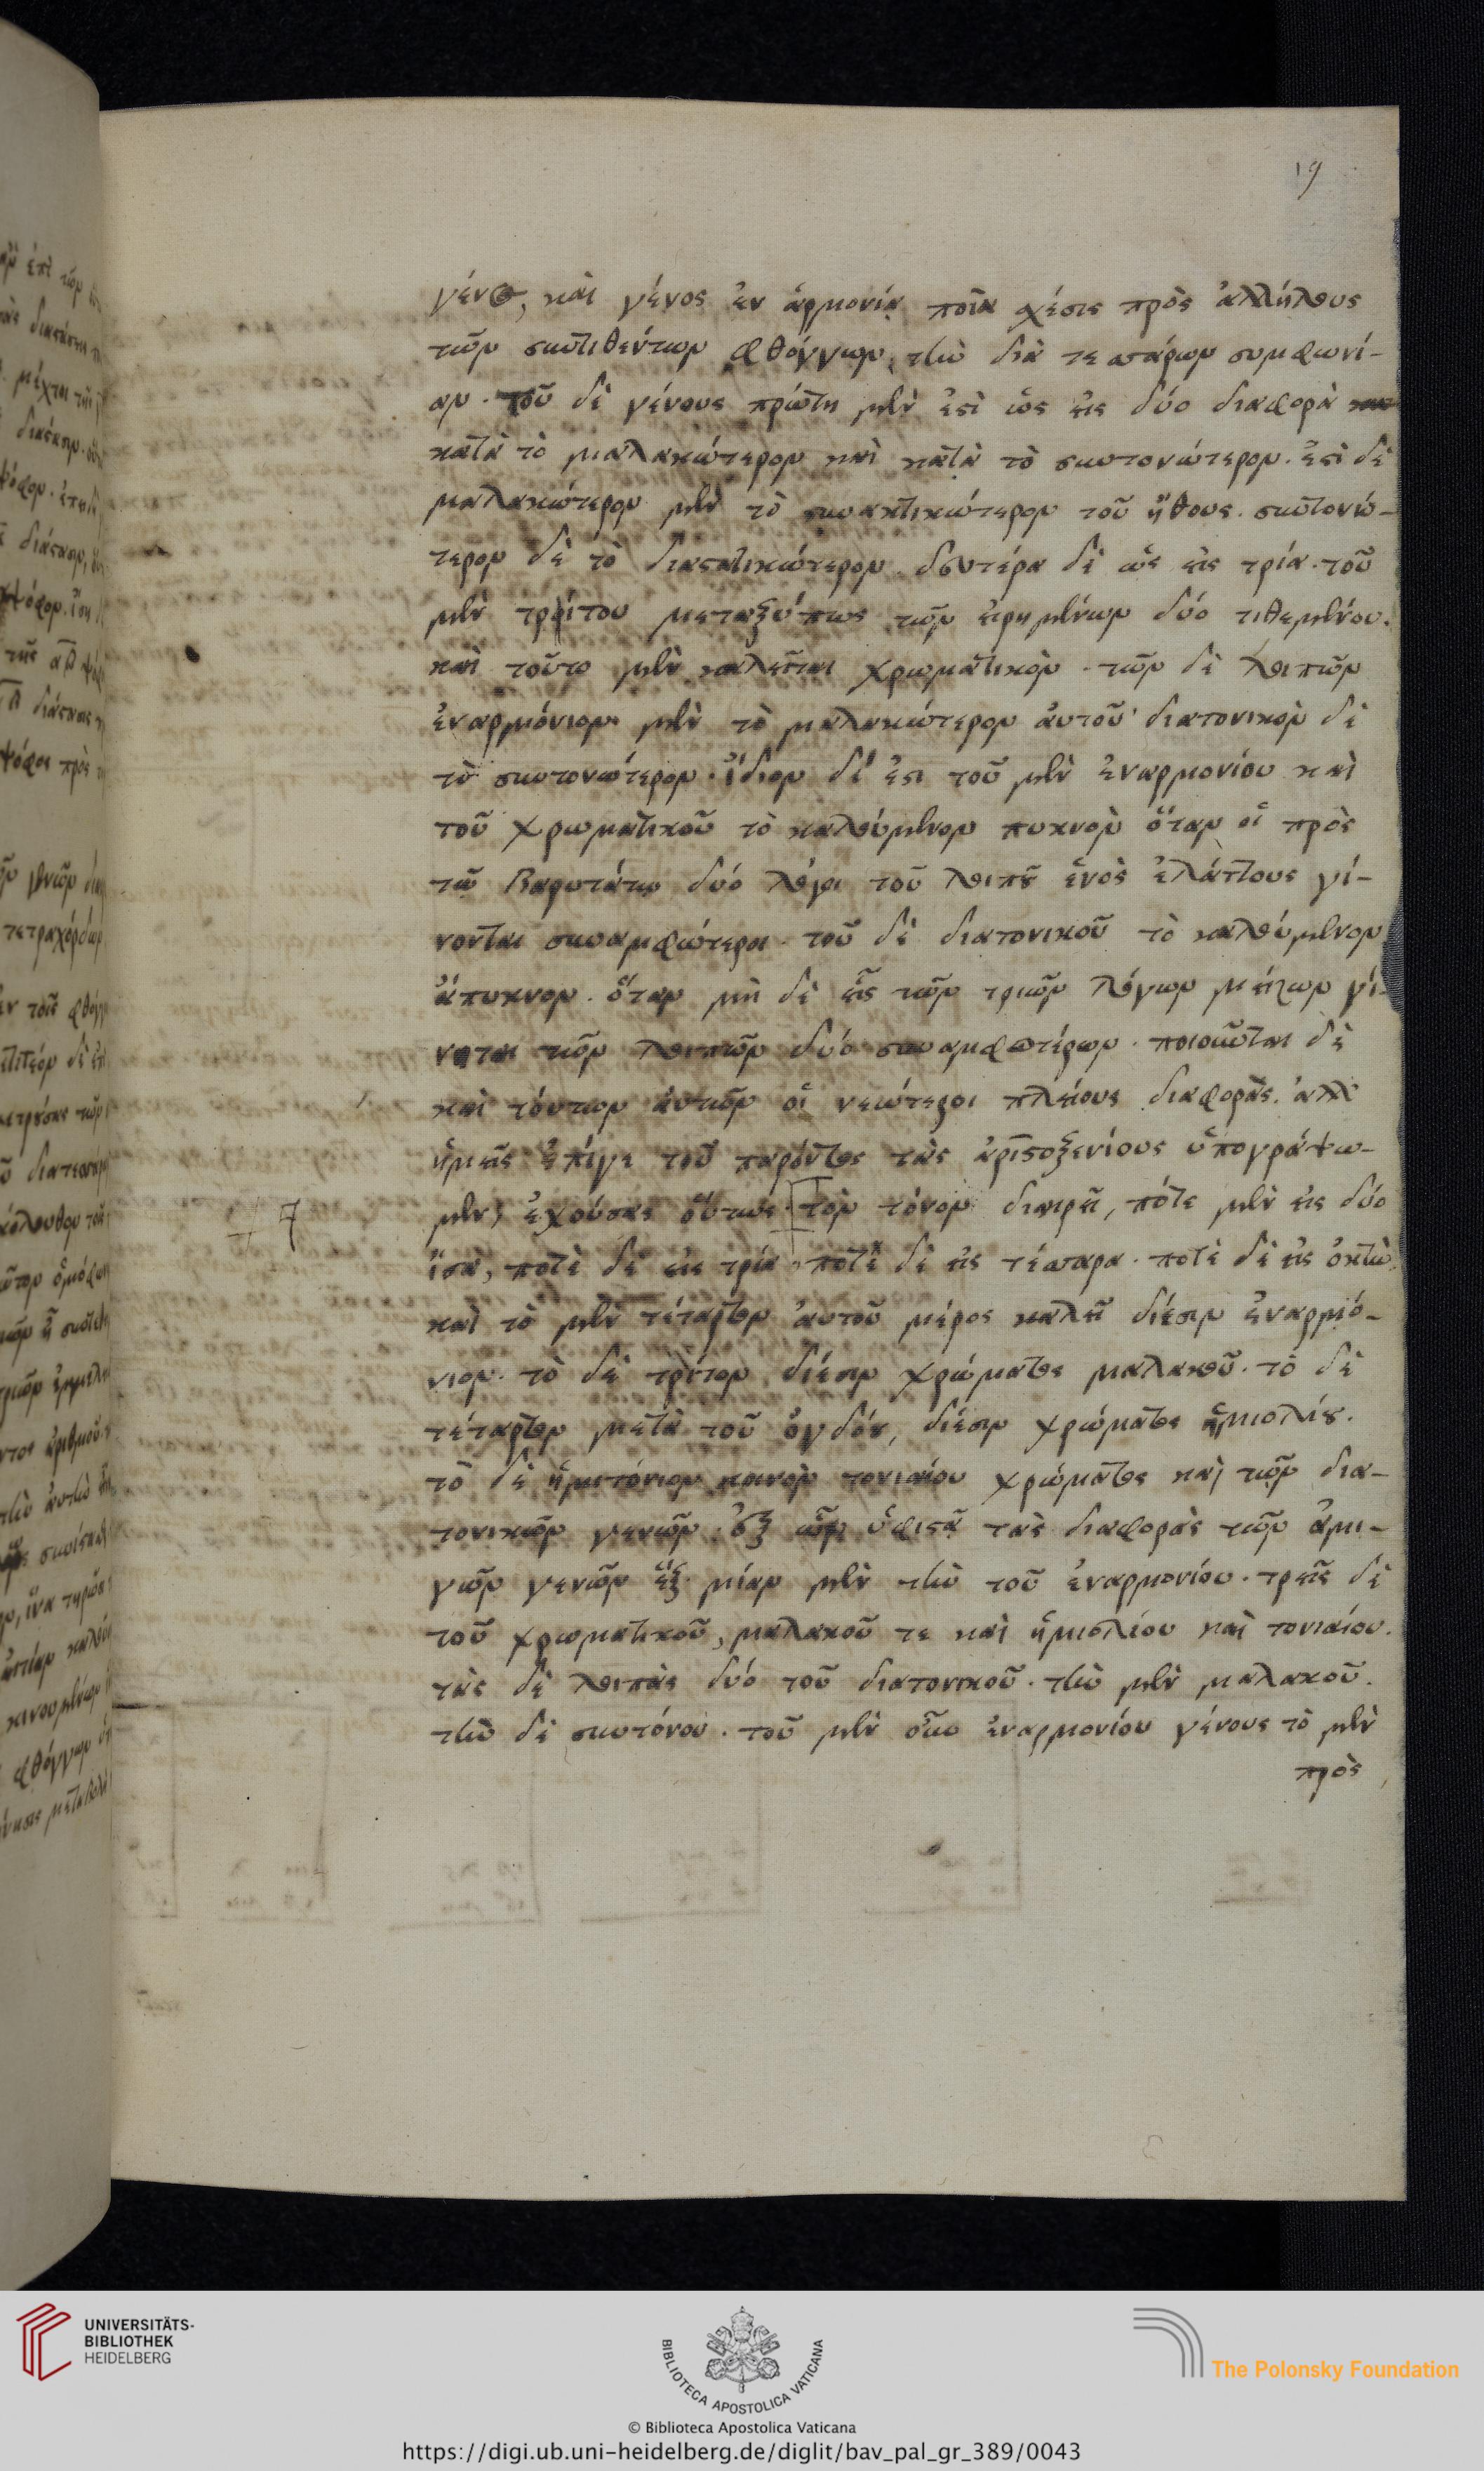 19
γένος, καὶ γένος ἐν ἁρμονίᾳ ποῖα σχέσις πρὸς ἀλλήλους
τῶν συντιθέντων φθόγγων, τὴν διὰ τεσσάρων συμφωνί-
αν. τοῦ δὲ γένους πρώτη μέν ἐστι ὡς εἰς δύο διαφορὰ
κατὰ τὸ μαλακώτερον καὶ κατὰ τὸ συντονώτερον. ἐστὶ δὲ
μαλακώτερον μὲν τὸ συνακτικώτερον τοῦ ἤθους. συντονώ-
τερον δὲ τὸ διαστατικώτερον. δευτέρα δὲ ὡς εἰς τρία. τοῦ
μὲν τρίτου μεταξύ πως τῶν εἰρημένων δύο τιθεμένου.
καὶ τοῦτο μὲν καλεῖται χρωματικὸν. τῶν δὲ λοιπῶν
ἐναρμόνιον μὲν τὸ μαλακώτερον αὐτοῦ· διατονικὸν δὲ
τὸ συντονώτερον. ἴδιον δέ ἐστι τοῦ μὲν ἐναρμονίου καὶ
τοῦ χρωματικοῦ τὸ καλούμενον πυκνὸν ὅταν οἱ πρὸς
τῷ βαρυτάτῳ δύο λόγοι τοῦ λοιποῦ ἑνὸς ἐλάττους γί-
νονται συναμφώτεροι. τοῦ δὲ διατονικοῦ τὸ καλούμενον
ἄπυκνον. ὅταν μὴ δὲ εἷς τῶν τριῶν λόγων μείζων γί-
νηται τῶν λοιπῶν δύο συναμφοτέρων. ποιοῦνται δὲ
καὶ τούτων αὐτῶν οἱ νεώτεροι πλείους διαφοράς. ἀλλ
ἡμεῖς ἐπίγε τοῦ παρόντος τὰς ἀριστοξενίους ὑπογράψω-
μεν, ἐχούσας οὕτως. τὸν τόνον διαιρεῖ, πότε μὲν εἰς δύο
ἴσα, ποτὲ δὲ εἰς τρία, ποτὲ δὲ εἰς τέσσαρα. ποτὲ δὲ εἰς ὀκτὼ.
καὶ τὸ μὲν τέταρτον αὐτοῦ μέρος καλεῖ δίεσιν ἐναρμό-
νιον. τὸ δὲ τρίτον δίεσιν χρώματος μαλακοῦ. τὸ δὲ
τέταρτον μετὰ τοῦ ὀγδόου, δίεσιν χρώματος ἡμιολίου.
τὸ δὲ ἡμιτόνιον κοινὸν τονιαίου χρώματος καὶ τῶν δια-
τονικῶν γενῶν. ἐξ ὧν ὑφιστᾷ τὰς διαφορὰς τῶν ἀμι-
γῶν γενῶν ἕξ. μίαν μὲν τὴν τοῦ ἐναρμονίου. τρεῖς δὲ
τοῦ χρωματικοῦ, μαλακοῦ τε καὶ ἡμιολίου καὶ τονιαίου.
τὰς δὲ λοιπὰς δύο τοῦ διατονικοῦ. τὴν μὲν μαλακοῦ.
τὴν δὲ συντόνου. τοῦ μὲν οὖν ἐναρμονίου γένους τὸ μὲν
πρὸς
UNIVERSITÄTS-
BIBLIOTHEK
HEIDELBERG
BIBLIOTECA APOSTOLICA VATICANA
The Polonsky Foundation
© Biblioteca Apostolica Vaticana
https://digi.ub.uni-heidelberg.de/diglit/bav_pal_gr_389/0043